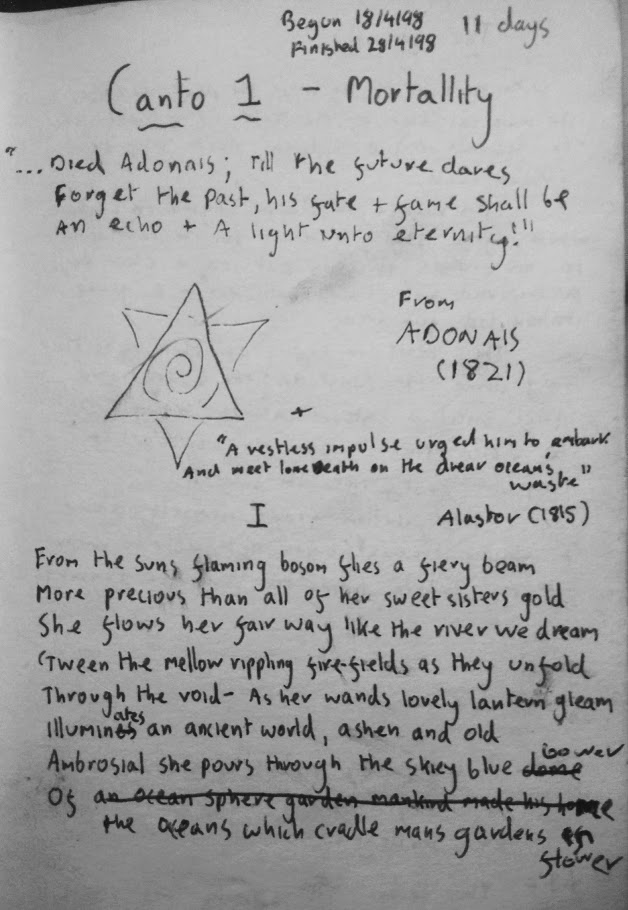 Begun 18/4/98 11 days
Finished 28/4/98
Canto 1 - Mortallity
"...Died Adonais; till the future dares
Forget the Past, his fate + fame shall be
An echo + A light unto eternity!"
From
ADONAIS
(1821)
+
"A restless impulse urged him to embark
And meet lone Death on the drear oceans,
waste"
Alastor (1815)
I
From the suns flaming bosom flies a fiery beam
More precious than all of her sweet sisters gold
She flows her fair way like the river we dream
'Tween the mellow rippling fire-fields as they unfold
Through the void- As her wands lovely lantern gleam
Illuminates an ancient world, ashen and old
Ambrosial she pours through the skiey blue dome bower
Of an ocean sphere garden mankind made his home
the oceans which cradle mans gardens
flower